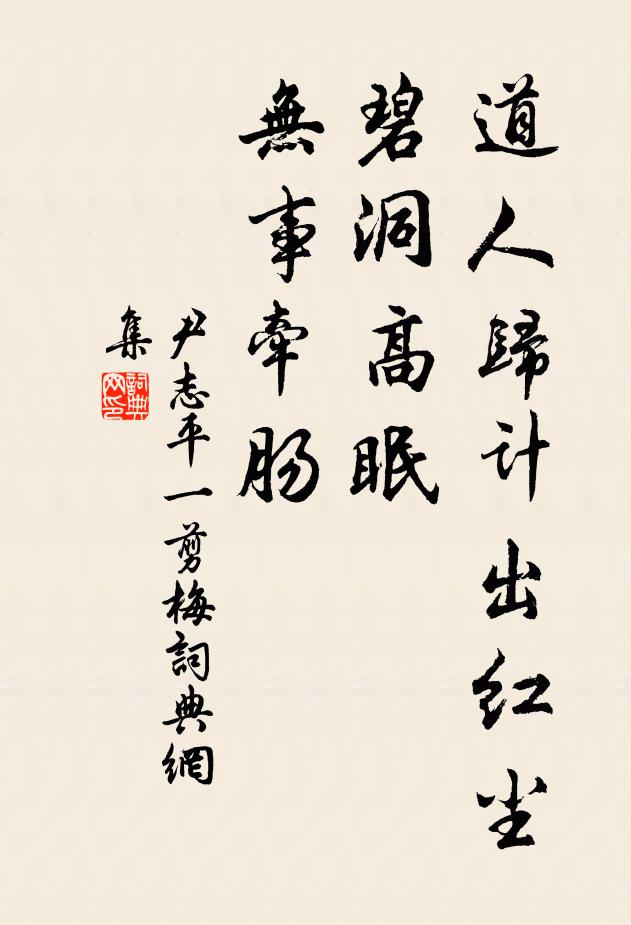 道人歸计出红尘
碧洞高眠
無事牵肠
尹志平一剪梅詞典網
集
詞典网印